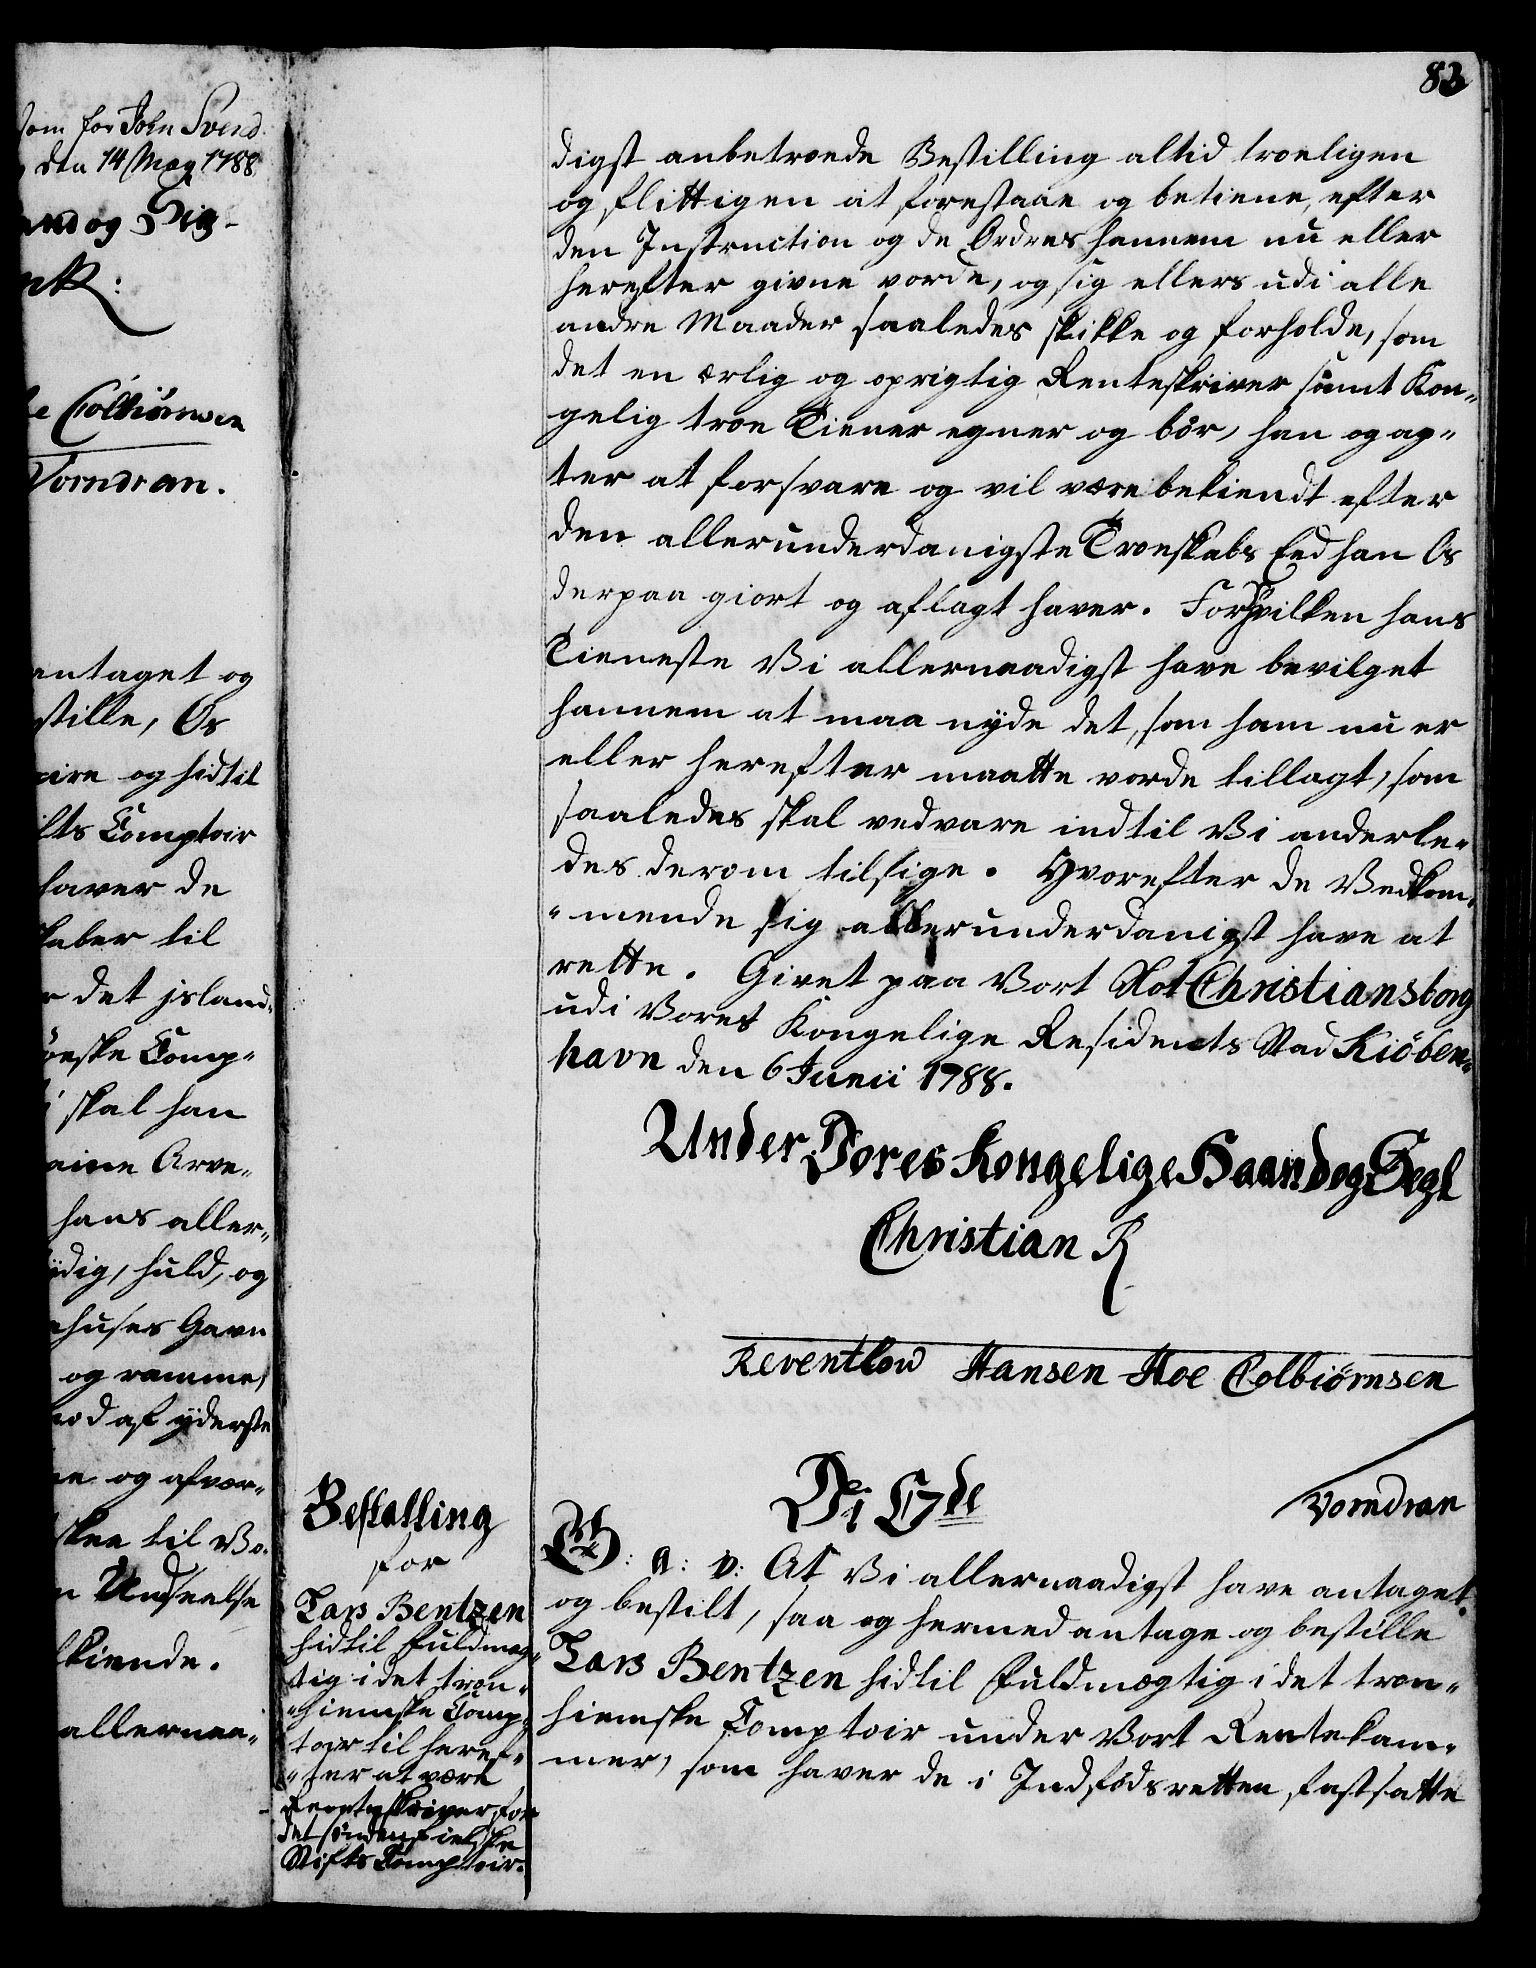 som for John Svend
den 14 May 1788
and og Sig-
R:
Colbiörnsen
Vorndran.
antaget og
stille, Os
og hidtil
Comptoir
haver de
skaber til
det jsland-
öeske Comp-
skal han
Arve-
hans aller-
ydig, huld, og
huses Gavn
og ramme,
af yderste
og afvær-
skee til Vo-
Undseelse
kiende.
allernaa-
83
digst anbetroede Bestilling altid troeligen
og flittigen at forestaae og betiene, efter
den Instruction og de Ordres hannem nu eller
herefter givne vorde, og sig ellers udi alle
andre Maader saaledes skikke og forholde, som
det en ærlig og oprigtig Renteskriver samt Kon-
gelig troe Tiener egner og bör, han og ag-
ter at forsvare og vil være bekiendt efter
den allerunderdanigste Troeskabs Eed han Os
derpaa giort og aflagt haver. Forhvilken hans
Tieneste Vi allernaadigst have bevilget
hannem at maa nyde det, som ham nu er
eller herefter maatte vorde tillagt, som
saaledes skal vedvare indtil Vi anderle-
des derom tilsige. Hvorefter de Vedkom-
-mende sig allerunderdanigst have at
rette. Givet paa Vort Slot Christiansborg
udi Vores Kongelige Residents Stad Kiöben-
havn den 6 Junii 1788.
Under Vores Kongelige Haand og Segl
Christian R
Reventlow Hansen Hoe Colbiörnsen
Vorndran
Vi C 7de
Bestalling
for
Lars Bentzen
hidtil Fuldmæg-
tig i det tron-
-hiemske Comp-
toir til heref-
-ter at være
Renteskriver for
det söndenfieldske
Stifts Comptoir.
G: A: V: At Vi allernaadigst have antaget
og bestilt, saa og hermed antage og bestille
Lars Bentzen hidtil Fuldmægtig i det tron-
hiemske Comptoir under Vort Rentekam-
mer, som haver de i Indfödsretten fastsatte